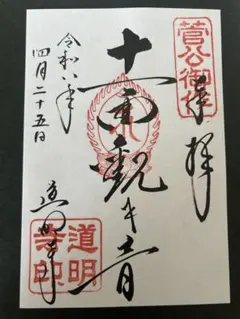 菅公御作
奉拝
十一面観世音
令和八年
四月二十五日
道明寺
道明
寺印